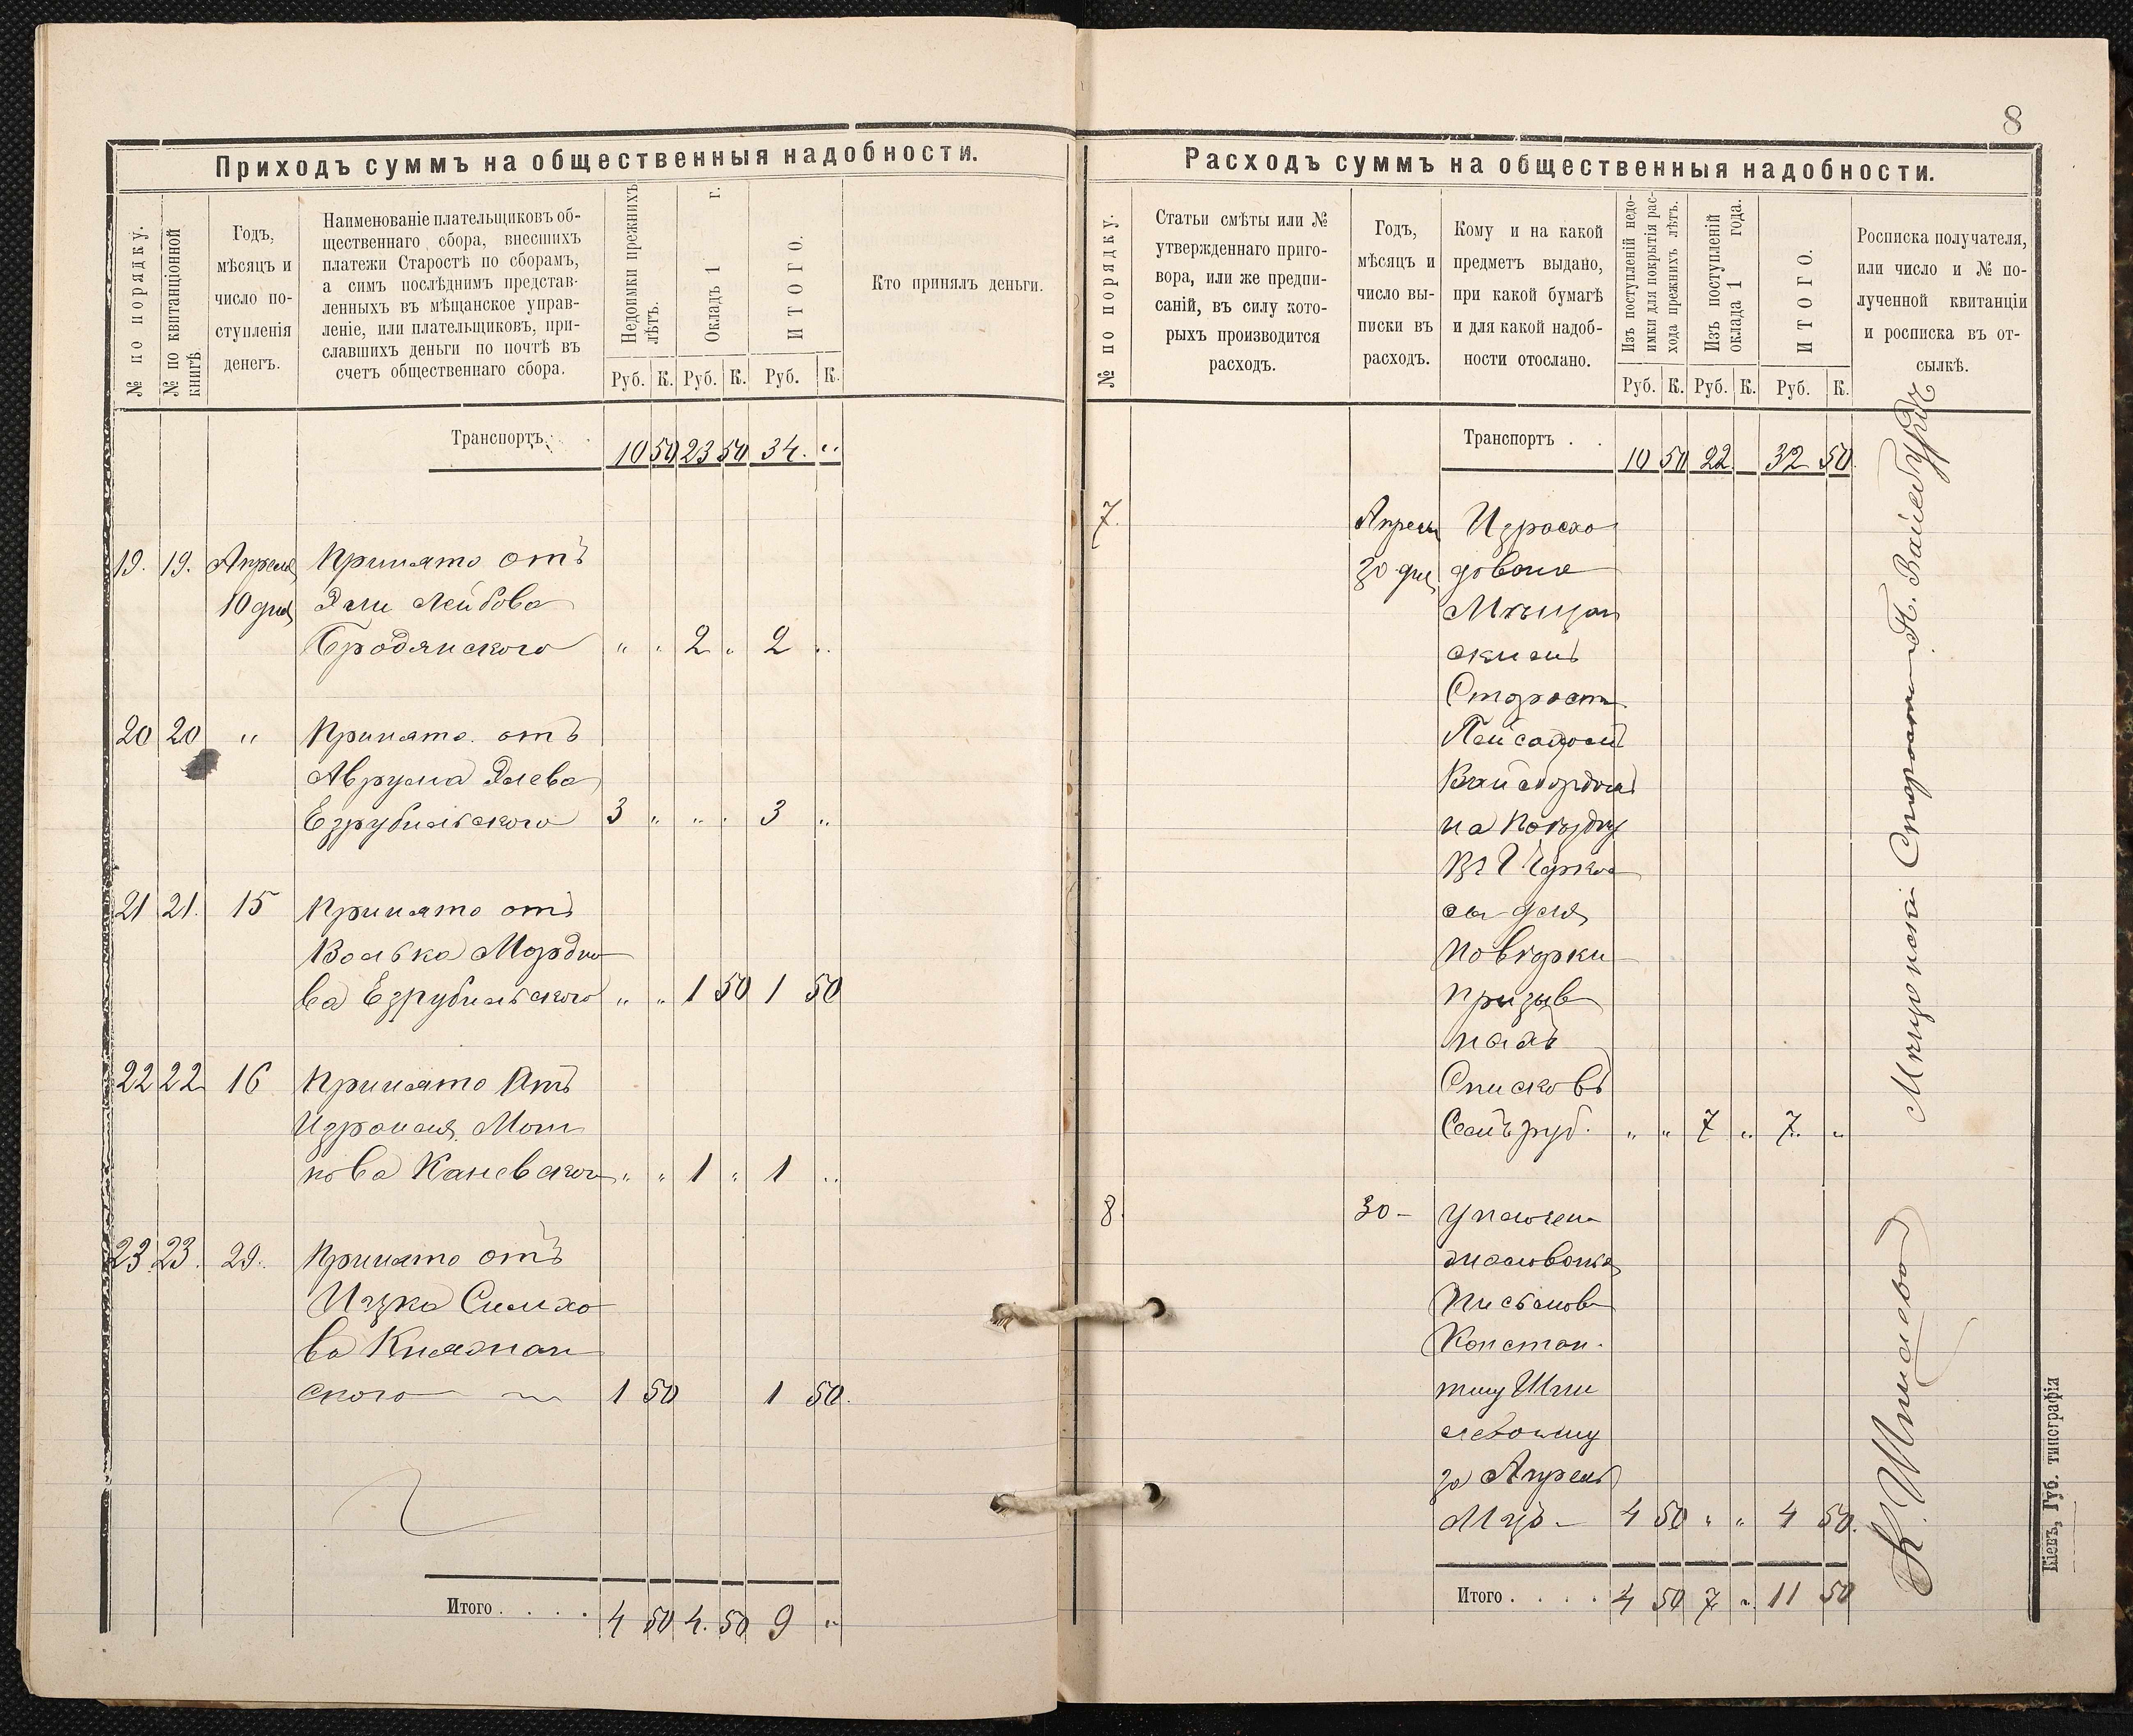 8
Приходъ суммъ на общественныя надобности.
№ по порядку.
№ по квитанціонной книгѣ.
Годъ,
мѣсяцъ и
число по-
ступленія
денегъ.
Наименованіе плательщиковъ об-
щественнаго сбора, внесшихъ
платежи Старостѣ по сборамъ,
а симъ послѣднимъ представ-
ленныхъ въ мѣщанское управ-
леніе, или плательщиковъ, при-
славшихъ деньги по почтѣ въ
счетъ общественнаго сбора.
Недоимки прежнихъ
лѣтъ.
Окладъ 1 г.
ИТОГО.
Кто принялъ деньги.
Руб. К. Руб. К. Руб. К.
Транспортъ. 10 50 23 50 34. "
19. 19. Апреля Принято отъ
10 дня Эли Лейбова
Бродянского " " 2 " 2 "
20 20 " Принято отъ
Аврума Элева
Езрубильского 3 " " " 3 "
21 21. 15 Принято отъ
Волька Мордко
ва Езрубильского " " 1 50 1 50
22 22 16 Принято Отъ
Изроиля Мош
кова Каневского " " 1 " 1 "
23. 23. 29. Принято отъ
Ицка Симхо
ва Княжан
ского 1 50 1 50.
Итого . . . . 4 50 4. 50 9 "
Расходъ суммъ на общественныя надобности.
№ по порядку.
Статьи смѣты или №
утвержденнаго приго-
вора, или же предпи-
саній, въ силу кото-
рыхъ производится
расходъ.
Годъ,
мѣсяцъ и
число вы-
писки въ
расходъ.
Кому и на какой
предметъ выдано,
при какой бумагѣ
и для какой надоб-
ности отослано.
Изъ поступленій недо-
имки для покрытія рас-
хода прежнихъ лѣтъ.
Изъ поступленій
оклада 1 года.
ИТОГО.
Росписка получателя,
или число и № по-
лученной квитанціи
и росписка въ от-
сылкѣ.
Руб. К. Руб. К. Руб. К.
Транспортъ . . 10 50 22 32 50.
7. Апреля Израсхо
30 дня дована
Мѣщан
скимъ
Старост
Пейсахом
Вайсбурдом
на Поѣздку
Въ Г Черкас
сы для
повѣрки
призыв
ныхъ
Списковъ
Семъ руб. " " 7 " 7. "
8. 30 – Уплочен
жалованя
Письмов
Констан.
тину Шпи
левому
за Апрель
Мцъ – 4 50 " " 4 50.
Итого . . . . 4 50 7 " 11 50
Мѣщанскій Староста П. Вайсбурдъ
К. Шпилевой
Кіевъ, Губ. типографія